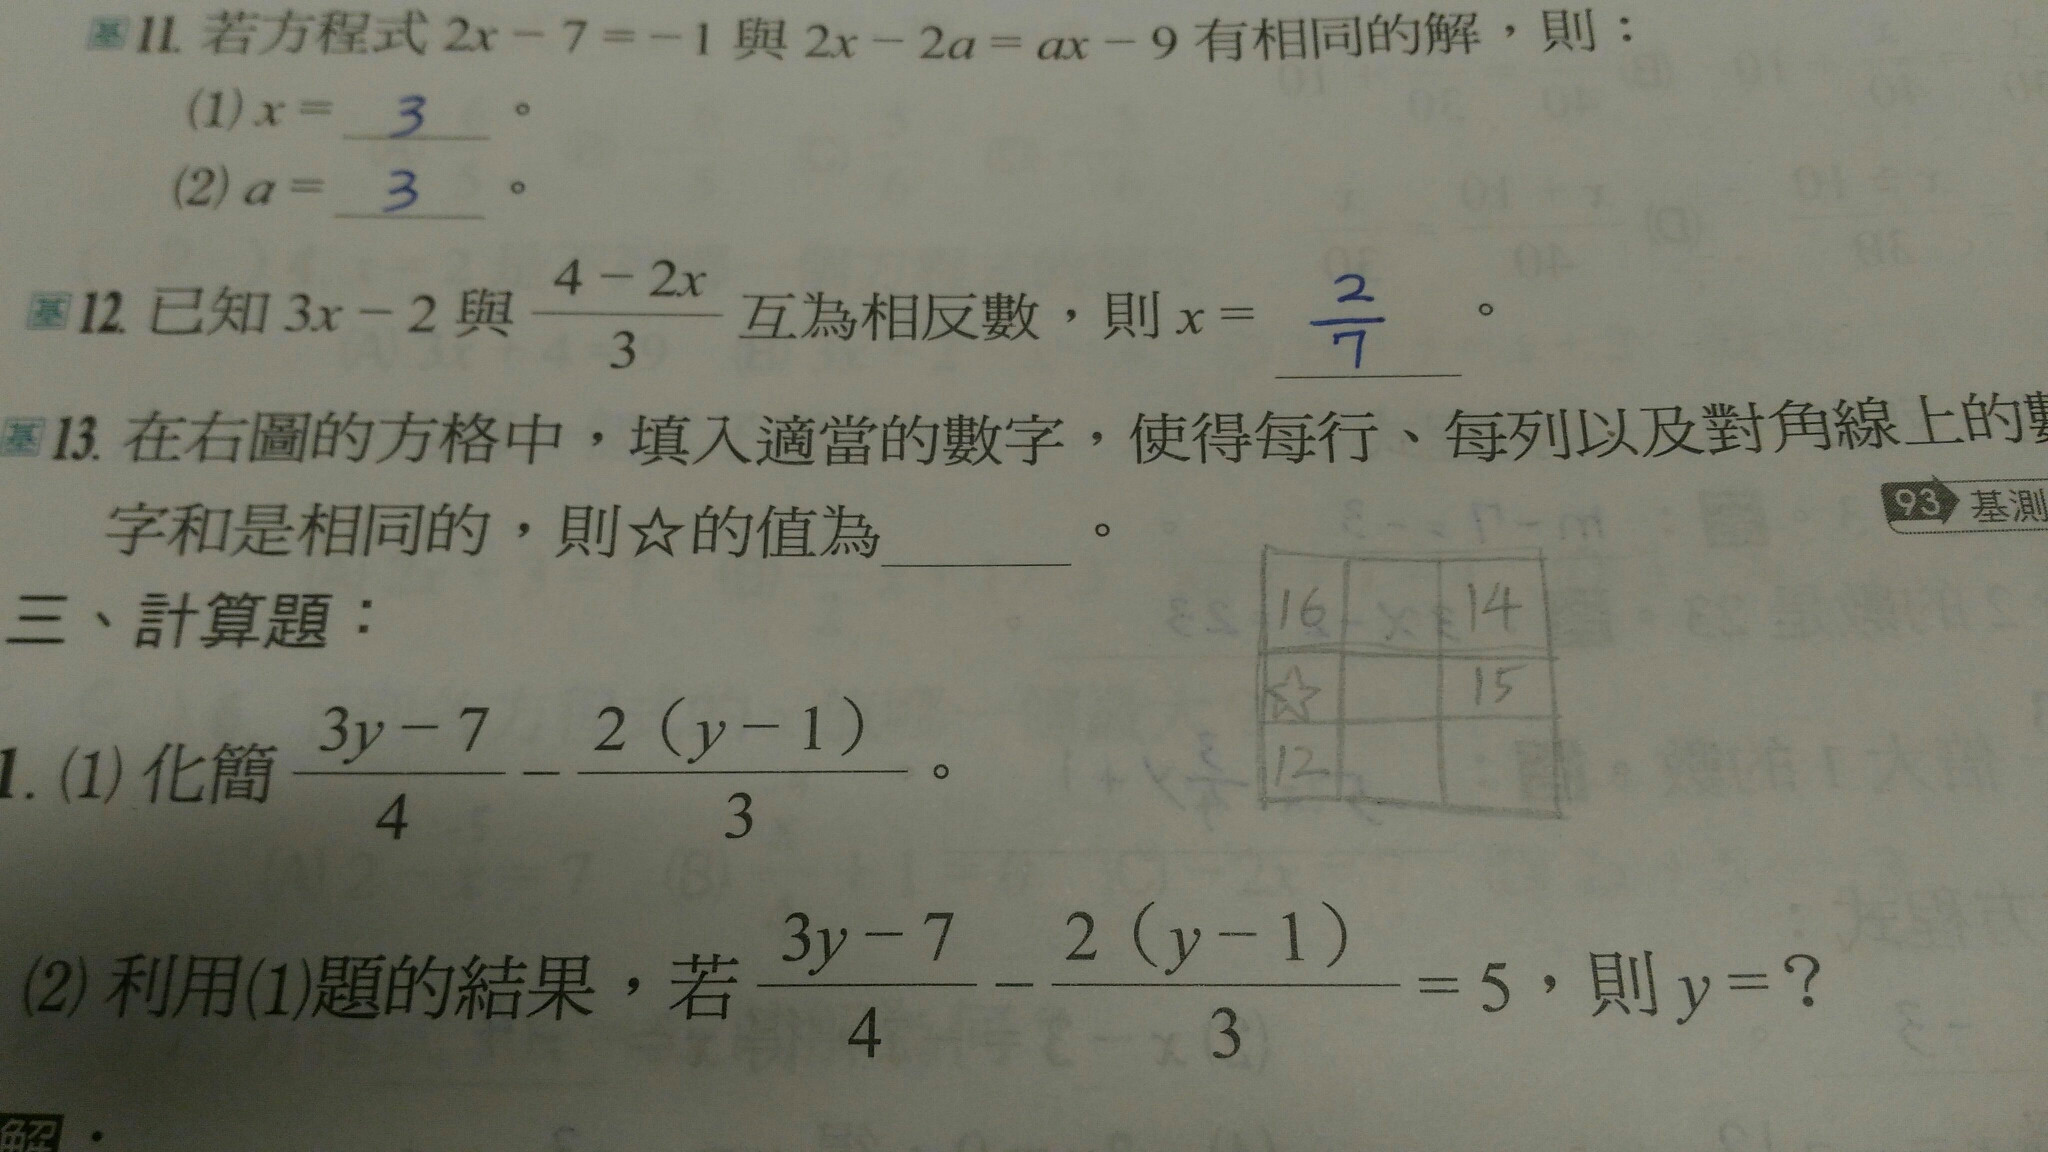 基 11. 若方程式 2x − 7 = −1 與 2x − 2a = ax − 9 有相同的解，則：
(1) x = 3 。
(2) a = 3 。
基 12. 已知 3x − 2 與 (4 − 2x)/3 互為相反數，則 x = 2/7 。
基 13. 在右圖的方格中，填入適當的數字，使得每行、每列以及對角線上的數
字和是相同的，則☆的值為______。
93 基測
16 14
☆ 15
12
三、計算題：
1. (1) 化簡 (3y − 7)/4 − 2（y − 1）/3 。
(2) 利用(1)題的結果，若 (3y − 7)/4 − 2（y − 1）/3 = 5，則 y = ？
解：